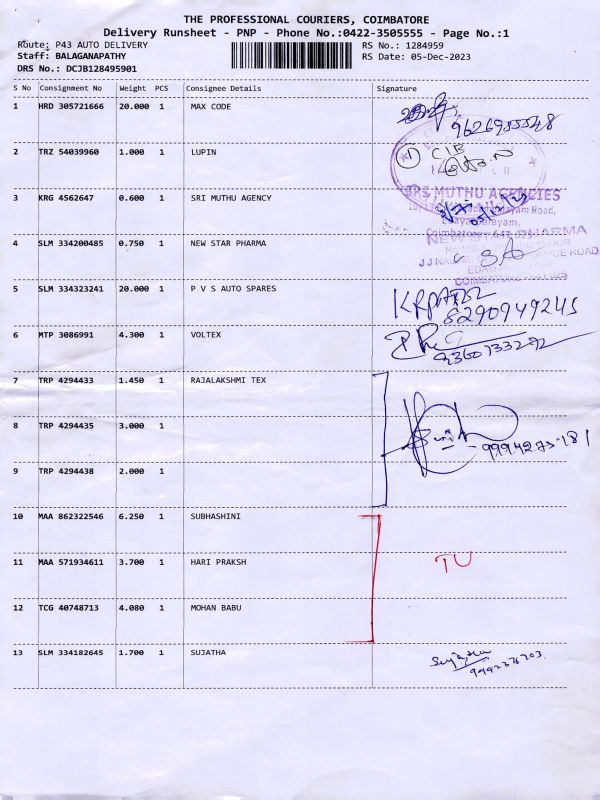 THE PROFESSIONAL COURIERS, COIMBATORE
Delivery Runsheet - PNP - Phone No.:0422-3505555 - Page No.:1
Route: P43 AUTO DELIVERY
Staff: BALAGANAPATHY
DRS No.: DCJB128495901
RS No.: 1284959
RS Date: 05-Dec-2023
S No Consignment No Weight PCS Consignee Details Signature
1 HRD 305721666 20.000 1 MAX CODE
2 TRZ 54039960 1.000 1 LUPIN
CIB
3 KRG 4562647 0.600 1 SRI MUTHU AGENCY
SRI MUTHU AGENCIES
4 SLM 334200485 0.750 1 NEW STAR PHARMA
5 SLM 334323241 20.000 1 P V S AUTO SPARES
8290949245
6 MTP 3086991 4.300 1 VOLTEX
9360733292
7 TRP 4294433 1.450 1 RAJALAKSHMI TEX
8 TRP 4294435 3.000 1
9 TRP 4294438 2.000 1
10 MAA 862322546 6.250 1 SUBHASHINI
11 MAA 571934611 3.700 1 HARI PRAKSH
TU
12 TCG 40748713 4.080 1 MOHAN BABU
13 SLM 334182645 1.700 1 SUJATHA
Sujatha